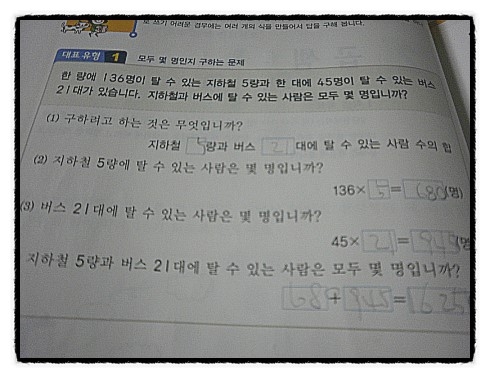 로 쓰기 어려운 경우에는 여러 개의 식을 만들어서 답을 구해 봅니다.
대표 유형 1 모두 몇 명인지 구하는 문제
한 량에 136명이 탈 수 있는 지하철 5량과 한 대에 45명이 탈 수 있는 버스
21대가 있습니다. 지하철과 버스에 탈 수 있는 사람은 모두 몇 명입니까?
(1) 구하려고 하는 것은 무엇입니까?
지하철 5량과 버스 21대에 탈 수 있는 사람 수의 합
(2) 지하철 5량에 탈 수 있는 사람은 몇 명입니까?
136×5=680(명)
(3) 버스 21대에 탈 수 있는 사람은 몇 명입니까?
45×21=945(명
지하철 5량과 버스 21대에 탈 수 있는 사람은 모두 몇 명입니까?
680+945=1625